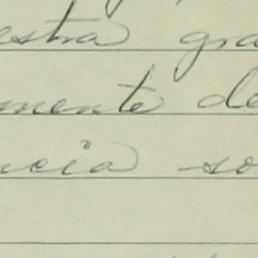 estra gra
mente de
ncia so